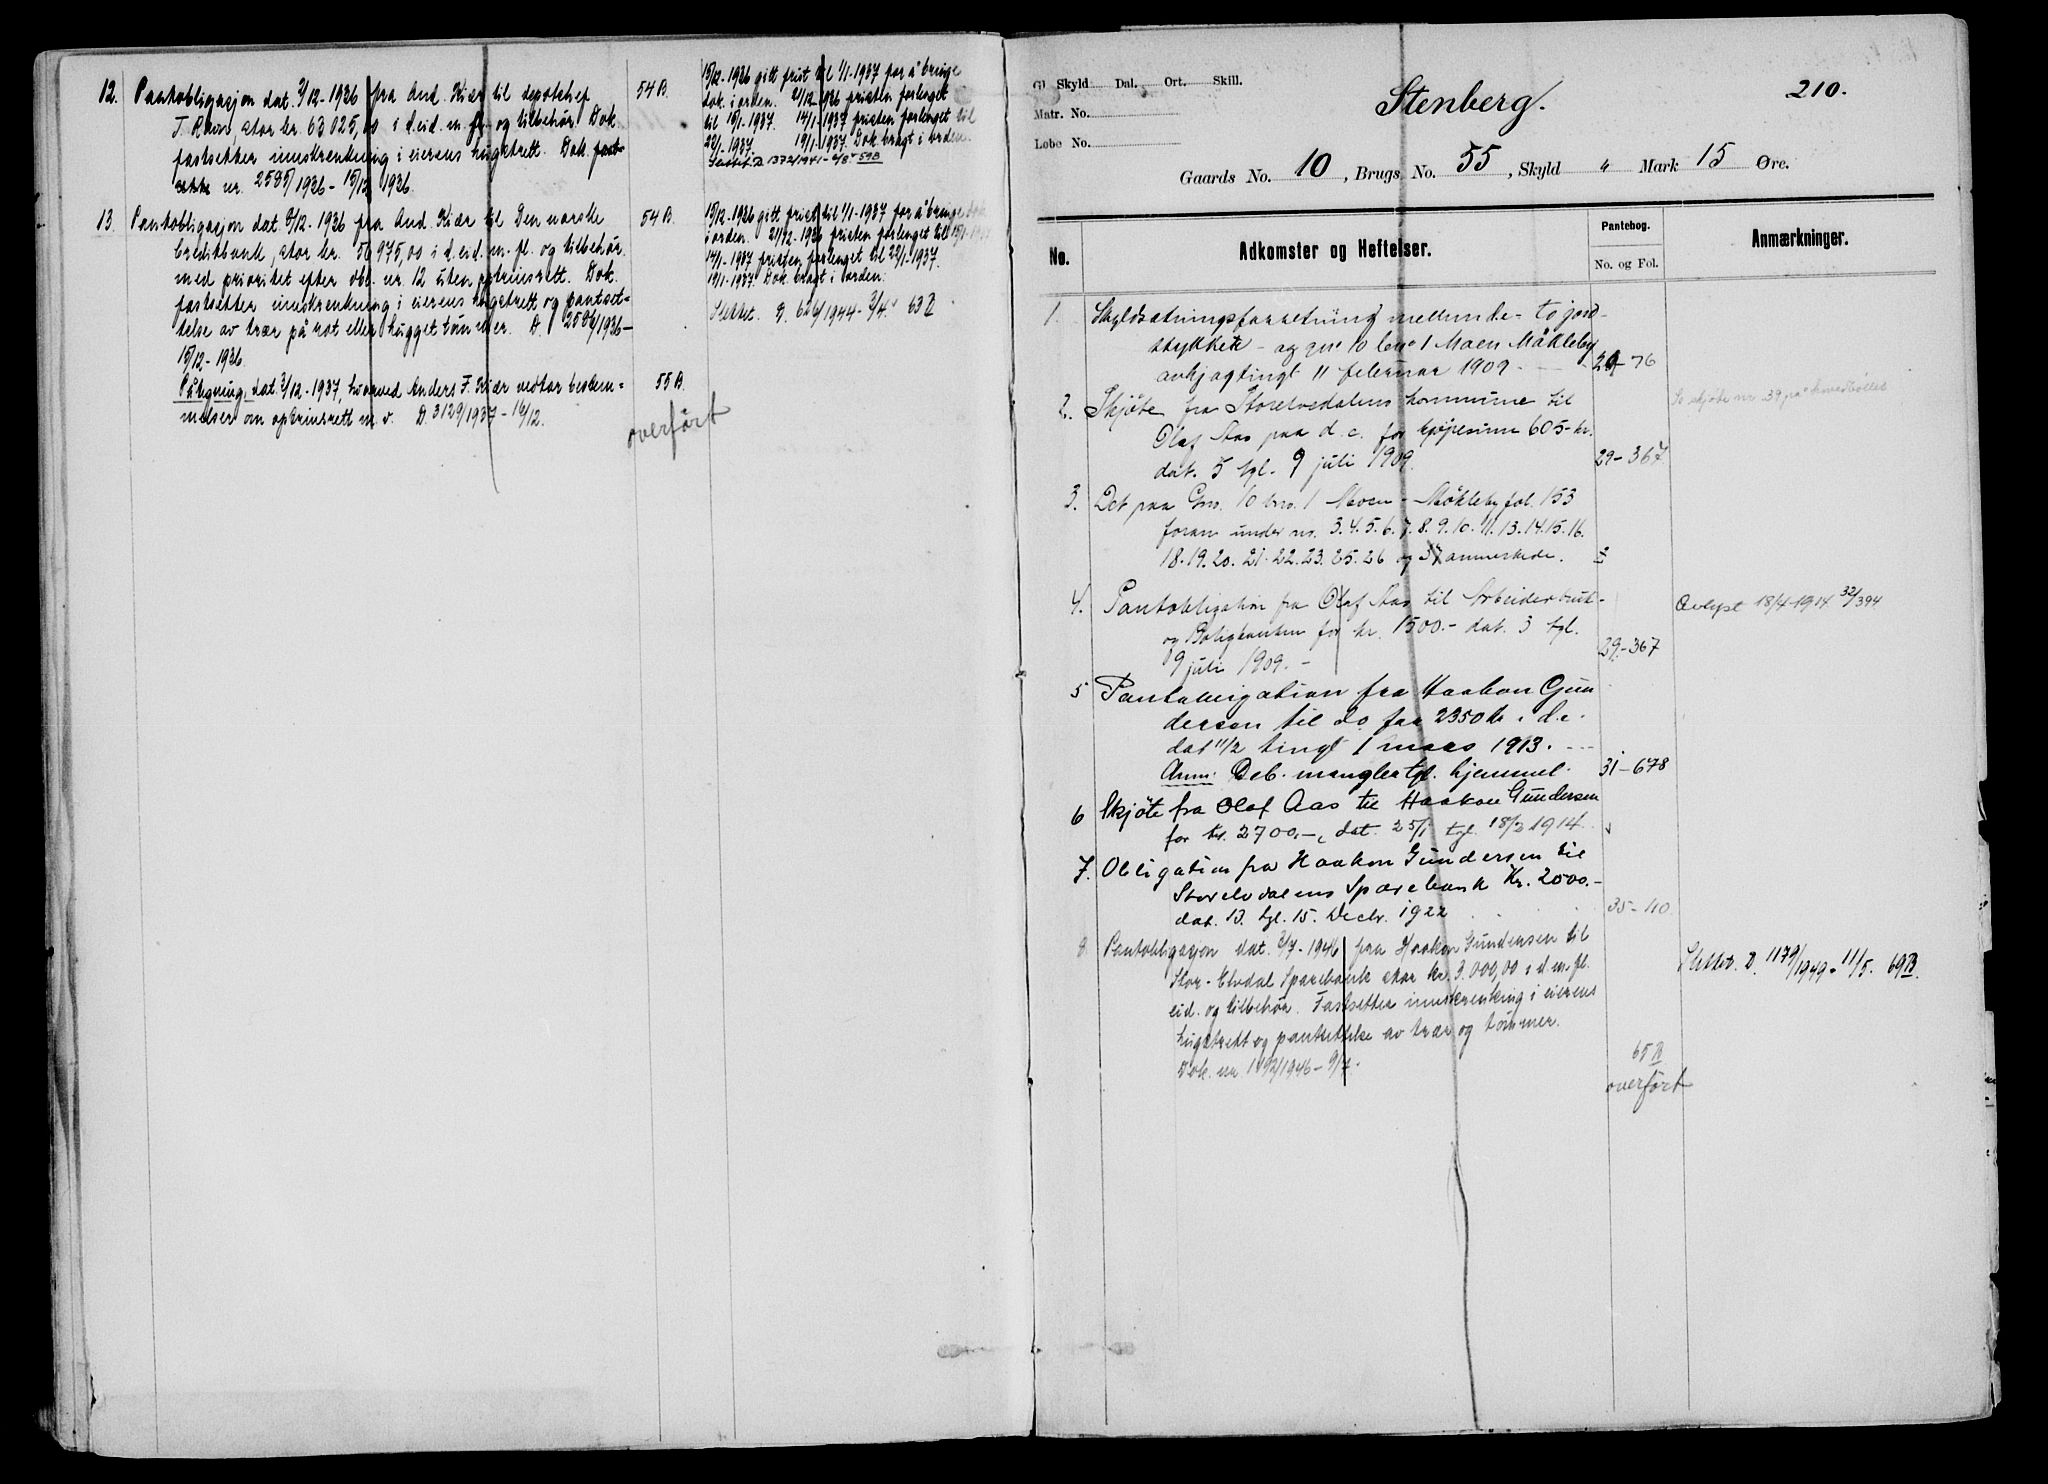 12. Pantobligasjon dat. 9/12-1936 fra And. Kiær til depotchef
T. Ravn, stor kr. 63 025,00 i d. eid. m. fl. og tilbehör. Dok.
fastsetter innskrenkning i eierens hugstrett. Dok.
nr. 2585/1936 - 15/12 1936.
54 B.
15/12-1936 gitt frist til 1/1-1937 for å bringe
dok. i orden. 21/12-1936 fristen forlenget
til 15/1-1937. 14/1-1937 fristen forlenget til
22/1-1937. 19/1-1937. Dok. bragt i orden.
1372/1941 - 2/8 59B
13. Pantobligasjon dat. 9/12-1936 fra And. Kiær til Den norske
Creditbank, stor kr. 56 975,00 i d. eid. m. fl. og tilbehör
med prioritet efter obl. nr. 12 uten optrinsrett. Dok.
fastsetter innskrenkning i eierens hugstrett og pantset-
telse av trær på rot eller hugget tömmer. D. 2586/1936 -
15/12-1936
54 B.
15/12-1936 gitt frist til 1/1-1937 for å bringe dok.
i orden. 21/12-1936 fristen forlenget til 15/1-1937
14/1-1937 fristen forlenget til 22/1-1937.
19/1-1937. Dok. bragt i orden.
Slettet. D. 626/1944 - 3/4. 63 B
Påtegning, dat. 3/12-1937, hvorved Anders F. Kiær vedtar bestem=
melser om optrinsrett m. v. D. 3129/1937 - 16/12.
55 B.
overført
Gl. Skyld Dal. Ort. Skill.
Matr. No.
Løbe No.
Stenberg.
210.
Gaards No. 10, Brugs No. 55, Skyld " Mark 15 Øre.
No.
Adkomster og Heftelser.
Pantebog.
No. og Fol.
Anmærkninger.
1. Skyldsætningsforretning mellem d. e. - to jord-
stykker - og gno 10 bno 1 Moen Mökleby
avhj og tingl. 11 februar 1909.
29-76
2. Skjöte fra Storelvedalens kommune til
Olaf Aas paa d. e. for kjøpesum 605- kr.
dat. 5 tgl. 9 juli 1909.
29-367
Se skjøte nr 39 på hovedbølet
3. Det paa Gno. 10 bno. 1 Moen - Mökleby fol. 153
foran under no. 3.4.5.6.7.8.9.10.11.13.14.15.16.
18.19.20.21.22.23.25.26 og 37 anmerkede.
4. Pantobligation fra Olaf Aas til Arbeiderbruk-
og Boligbanken for kr. 1500.- dat. 3 tgl.
9 juli 1909. -
29-367
Avlyst 18/4-1914 32/394
5 Pantobligation fra Haakon Gun
dersen til do for 2350 kr i d.e.
dat 11/2 tingl 1 mars 1913.
Anm: Deb. mangler tgl. hjemmel.
31-678
6 Skjöte fra Olaf Aas til Haakon Gundersen
for kr. 2700.-, dat. 25/1 tgl. 18/2 1914.
7. Obligation fra Haakon Gundersen til
Storelvdalens Sparebank Kr. 2000.-
dat. 13. tgl. 15. Decbr. 1922
35-110
8. Pantobligasjon dat. 2/7-1946 fra Haakon Gundersen til
Stor-Elvdal Sparebank stor kr. 3.000,00 i d. m. fl.
eid. og tilbehör. Fastsetter innskrenking i eierens
hugstrett og pantsettelse av trær og tömmer.
Dok. nr. 1492/1946 - 9/7.
65 B
Slettet. D. 1179/1949 - 11/5. 69 B.
overført